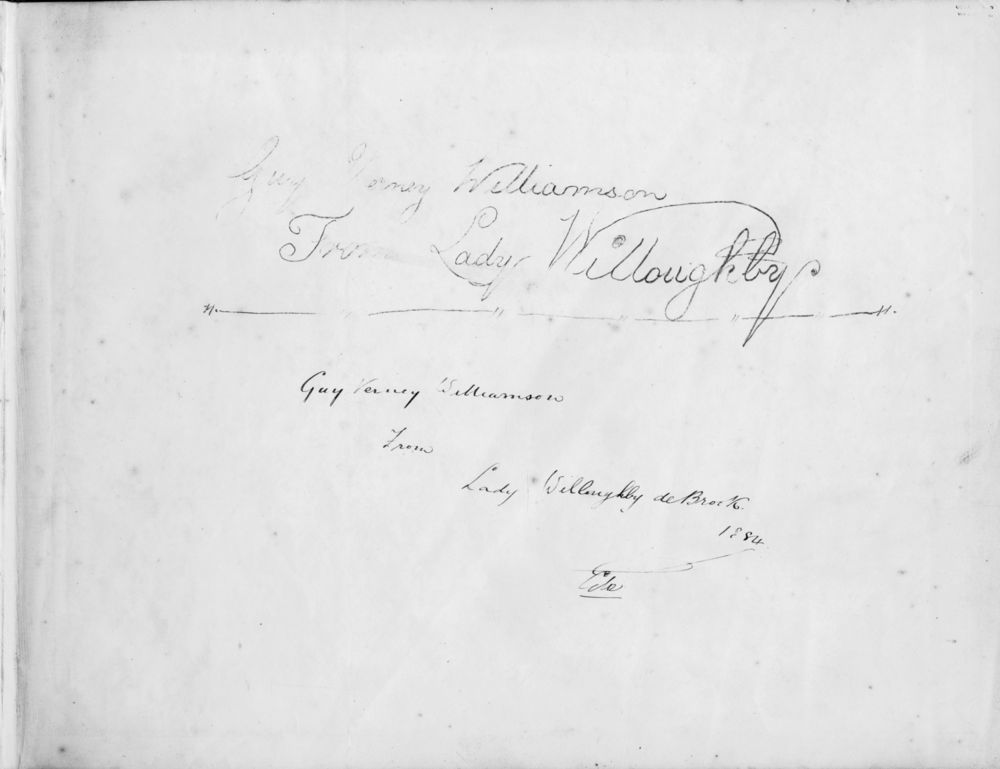 Guy Verney Williamson
From Lady Willoughby
Guy Verney Williamson
From
Lady Willoughby de Brock.
1884